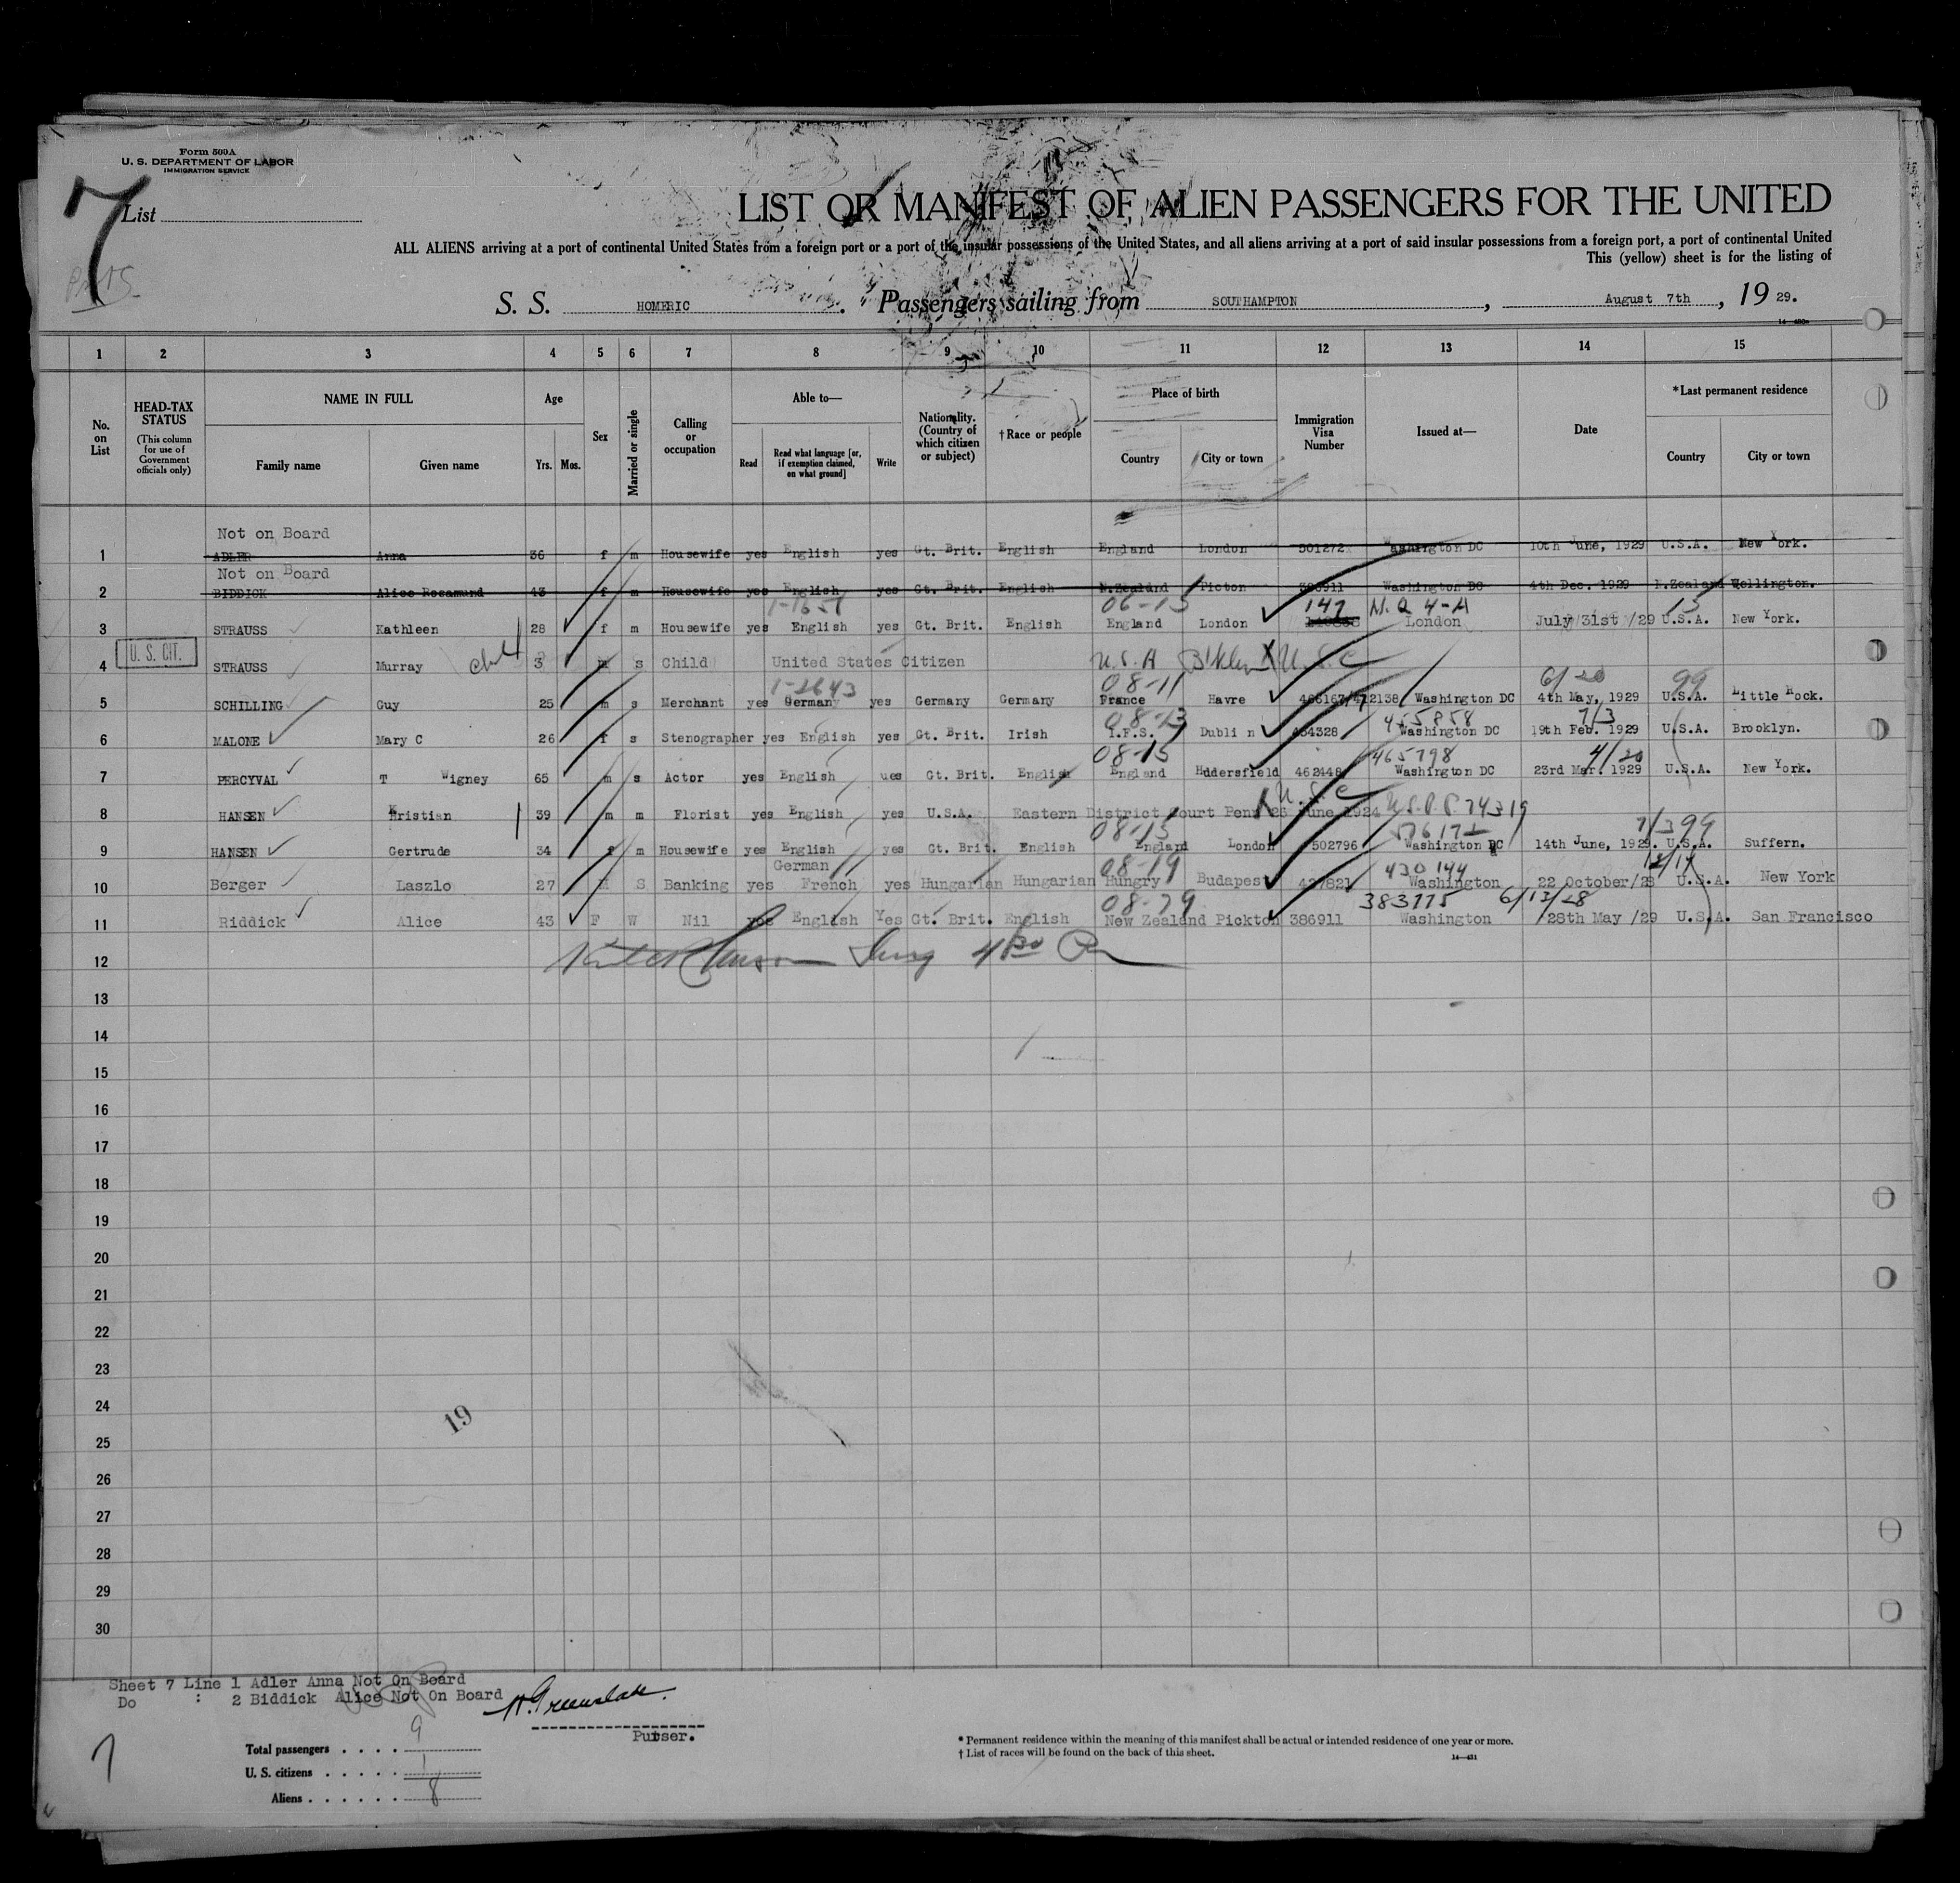 Form 500A
U. S. DEPARTMENT OF LABOR
IMMIGRATION SERVICE
7
List
LIST OR MANIFEST OF ALIEN PASSENGERS FOR THE UNITED
ALL ALIENS arriving at a port of continental United States from a foreign port or a port of the insular possessions of the United States, and all aliens arriving at a port of said insular possessions from a foreign port, a port of continental United
This (yellow) sheet is for the listing of
S. S. HOMERIC. Passengers sailing from SOUTHAMPTON, August 7th, 19 29.
1 2 3 4 5 6 7 8 9 10 11 12 13 14 15
No. on List
HEAD-TAX STATUS (This column for use of Government officials only)
NAME IN FULL
Family name Given name
Age
Yrs. Mos.
Sex
Married or single
Calling or occupation
Able to—
Read Read what language [or, if exemption claimed, on what ground] Write
Nationality. (Country of which citizen or subject)
†Race or people
Place of birth
Country City or town
Immigration Visa Number
Issued at—
Date
*Last permanent residence
Country City or town
Not on Board
1 ADLER Anna 36 f m Housewife yes English yes Gt. Brit. English England London 501272 Washington DC 10th June, 1929 U.S.A. New York.
Not on Board
2 BIDDICK Alice Rosamund 43 f m Housewife yes English yes Gt. Brit. English N.Zealand Picton 386911 Washington DC 4th Dec. 1929 N.Zealand Wellington.
06-15 147 N.Q 4-A 15
3 STRAUSS Kathleen 28 f m Housewife yes English yes Gt. Brit. English England London London July 31st /29 U.S.A. New York.
U. S. CIT.
4 STRAUSS Murray 3 m s Child United States Citizen U.S.A U.S.C
1-2643 08-11 6/20 99
5 SCHILLING Guy 25 m s Merchant yes German yes Germany Germany France Havre 466167/472138 Washington DC 4th May, 1929 U.S.A. Little Rock.
08-13 455858 7/3
6 MALONE Mary C 26 f s Stenographer yes English yes Gt. Brit. Irish I.F.S. Dubli n 454328 Washington DC 19th Feb. 1929 U.S.A. Brooklyn.
08-15 465798 4/20
7 PERCYVAL T Wigney 65 m s Actor yes English ues Gt. Brit. English England Hddersfield 462448 Washington DC 23rd Mar. 1929 U.S.A. New York.
U.S.C
8 HANSEN Kristian 39 m m Florist yes English yes U.S.A. Eastern District Court Penn 23 June 1924 U.S.P.P. 74319
08-15 99
9 HANSEN Gertrude 34 f m Housewife yes English yes Gt. Brit. English England London 502796 Washington DC 14th June, 1929. U.S.A. Suffern.
German 08-19 430144 12/17
10 Berger Laszlo 27 M S Banking yes French yes Hungarian Hungarian Hungry Budapes 427821 Washington 22 October/28 U.S.A. New York
08-79 383775 6/13/28
11 Riddick Alice 43 F W Nil yes English Yes Gt. Brit. English New Zealand Pickton 386911 Washington 28th May /29 U.S.A. San Francisco
12
13
14
15
16
17
18
19
20
21
22
23
24
19
25
26
27
28
29
30
Sheet 7 Line 1 Adler Anna Not On Board
Do : 2 Biddick Alice Not On Board
Purser.
Total passengers . . . . 9
U. S. citizens . . . . . 1
Aliens . . . . . . 8
7
* Permanent residence within the meaning of this manifest shall be actual or intended residence of one year or more.
† List of races will be found on the back of this sheet.
14—431